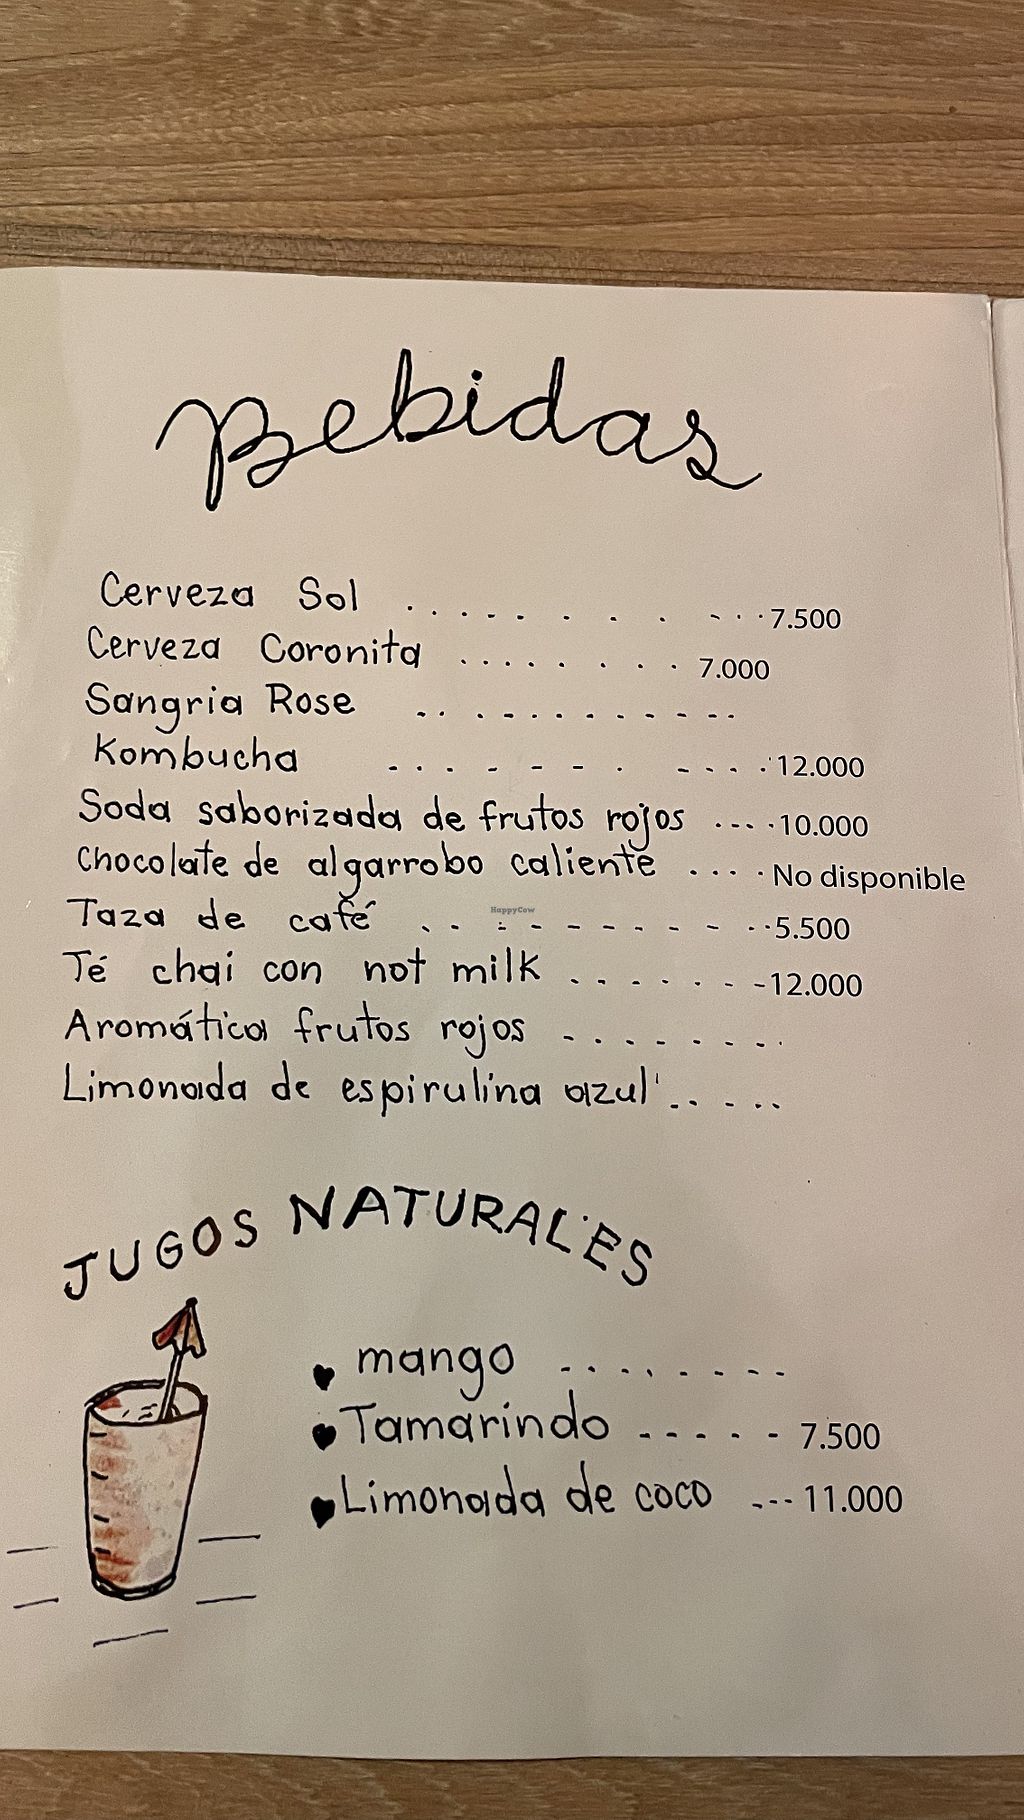 Bebidas
Cerveza Sol . . . . . . . . . . . 7.500
Cerveza Coronita . . . . . . . . . 7.000
Sangria Rose . . . . . . . . . . . .
Kombucha . . . - - - . - - . . 12.000
Soda saborizada de frutos rojos - - . . 10.000
Chocolate de algarrobo caliente . . . . No disponible
HappyCow
Taza de café . . : - - - - - - . . 5.500
Té chai con not milk . . . . . - - 12.000
Aromática frutos rojos - . . . . . . .
Limonada de espirulina azul . . - . .
JUGOS NATURALES
mango - . . . . - - -
Tamarindo - - - - - - 7.500
Limonada de coco - - - 11.000